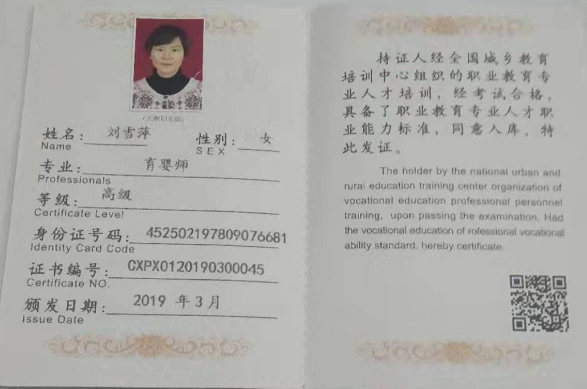 姓名: 刘雪萍 性别: 女
Name SEX
专业: 育婴师
Professionals
等级: 高级
Certificate Level
身份证号码: 452502197809076681
Identity Card Code
证书编号: CXPX0120190300045
Certificate NO.
颁发日期: 2019 年 3 月
Issue Date
持证人经全国城乡教育
培训中心组织的职业教育专
业人才培训，经考试合格，
具备了职业教育专业人才职
业能力标准，同意入库，特
此发证。
The holder by the national urban and
rural education training center organization of
vocational education professional personnel
training, upon passing the examination, Had
the vocational education of rofessional vocational
ability standard, hereby certificate.